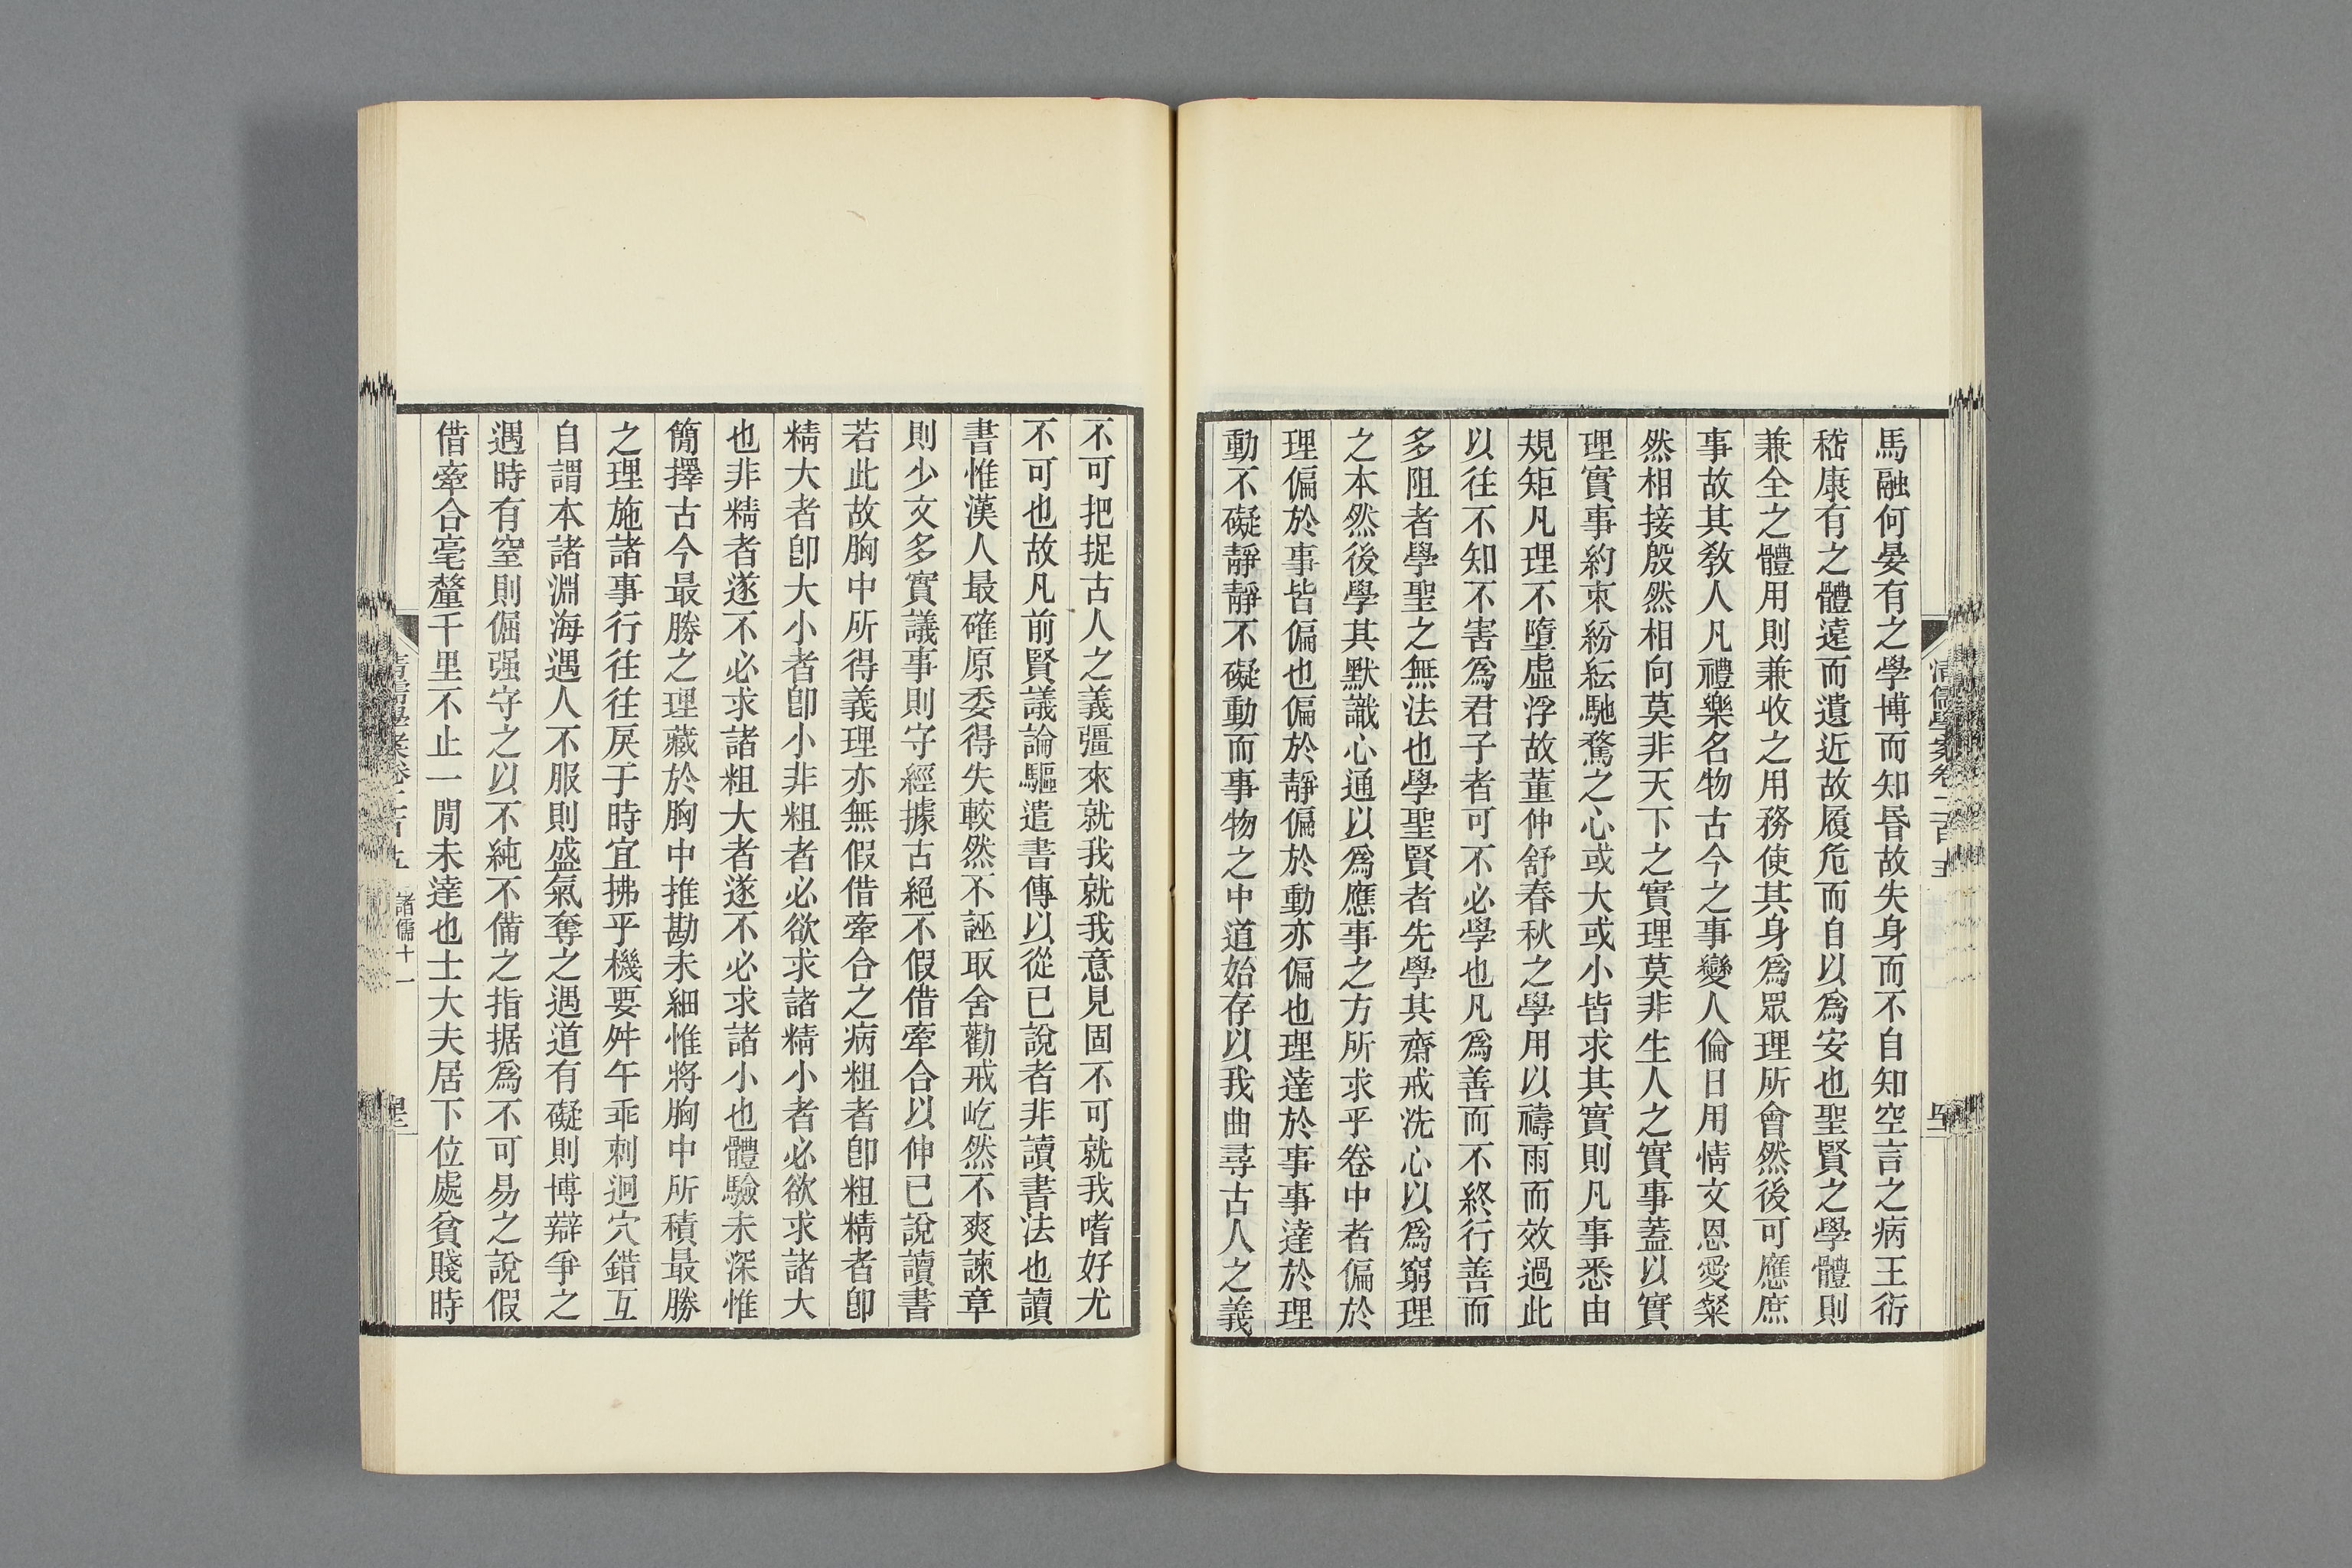 馬融何晏有之學博而知昬故失身而不自知空言之病王衍
嵇康有之體遠而遺近故履危而自以爲安也聖賢之學體則
兼全之體用則兼收之用務使其身爲眾理所會然後可應庶
事故其敎人凡禮樂名物古今之事變人倫日用情文恩愛粲
然相接殷然相向莫非天下之實理莫非生人之實事蓋以實
理實事約束紛紜馳騖之心或大或小皆求其實則凡事悉由
規矩凡理不墮虛浮故董仲舒春秋之學用以禱雨而效過此
以往不知不害爲君子者可不必學也凡爲善而不終行善而
多阻者學聖之無法也學聖賢者先學其齋戒洗心以爲窮理
之本然後學其默識心通以爲應事之方所求乎卷中者偏於
理偏於事皆偏也偏於靜偏於動亦偏也理達於事事達於理
動不礙靜靜不礙動而事物之中道始存以我曲尋古人之義
不可把捉古人之義彊來就我就我意見固不可就我嗜好尤
不可也故凡前賢議論驅遣書傳以從已說者非讀書法也讀
書惟漢人最確原委得失較然不誣取舍勸戒屹然不爽諫章
則少文多實議事則守經據古絕不假借牽合以伸已說讀書
若此故胸中所得義理亦無假借牽合之病粗者卽粗精者卽
精大者卽大小者卽小非粗者必欲求諸精小者必欲求諸大
也非精者遂不必求諸粗大者遂不必求諸小也體驗未深惟
簡擇古今最勝之理藏於胸中推勘未細惟將胸中所積最勝
之理施諸事行往往戾于時宜拂乎機要舛午乖刺迴穴錯互
自謂本諸淵海遇人不服則盛氣奪之遇道有礙則博辯爭之
遇時有窒則倔强守之以不純不備之指据爲不可易之說假
借牽合毫釐千里不止一閒未達也士大夫居下位處貧賤時
諸儒十一